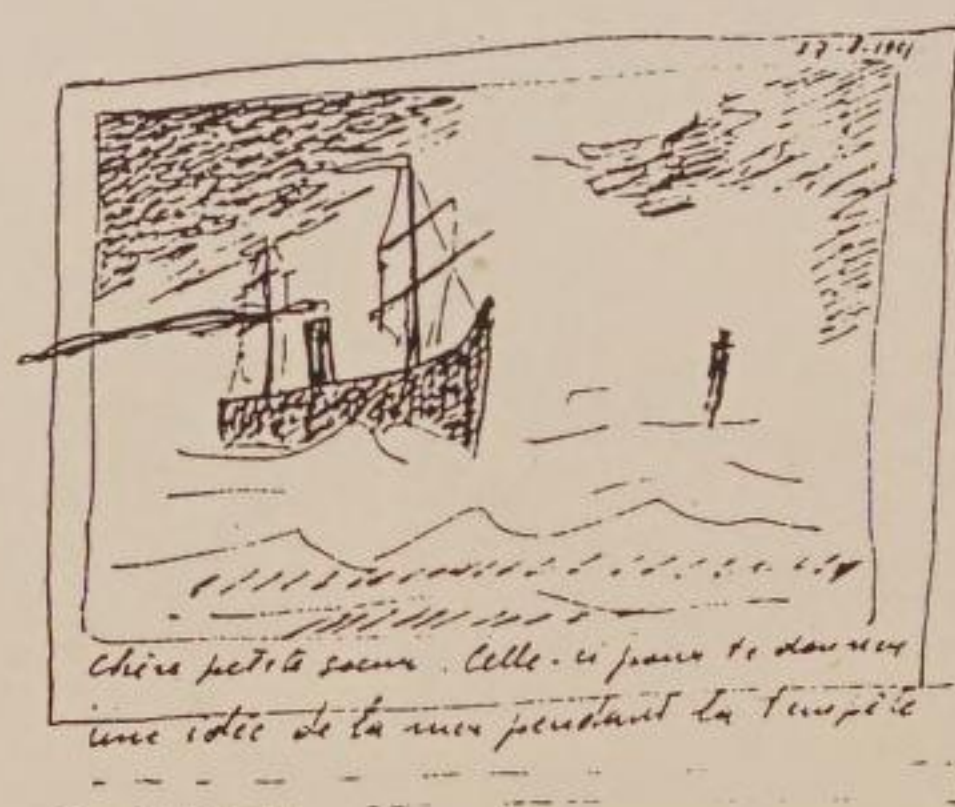 Chère petite soeur. Celle-ci pour te donner
une idée de la mer pendant la tempête